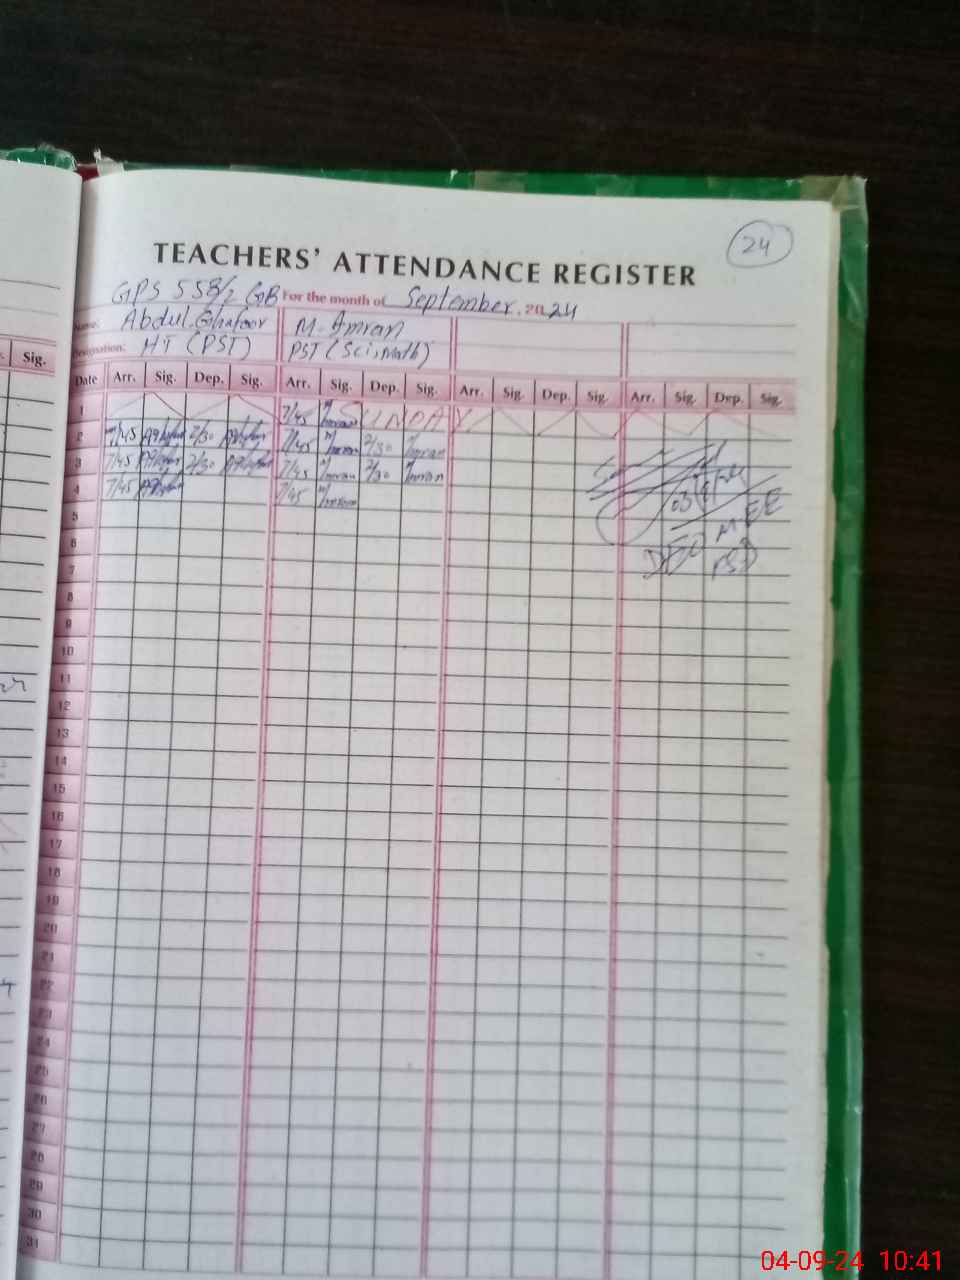 24
TEACHERS' ATTENDANCE REGISTER
GPS 558/2 GB For the month of September. 2024
Name: Abdul Ghafoor M. Amran
Designation: HT (PST) PST (Sci, Math)
Sig.
Date Arr. Sig. Dep. Sig. Arr. Sig. Dep. Sig. Arr. Sig. Dep. Sig. Arr. Sig. Dep. Sig.
1 7/45 SUNDAY
2 7/45 2/30 7/45 2/30
3 7/45 2/30 7/45 2/30
4 7/45 7/45
5
6
7
8
9
10
11
12
13
14
15
16
17
18
19
20
21
22
23
24
25
26
27
28
29
30
31
04-09-24 10:41